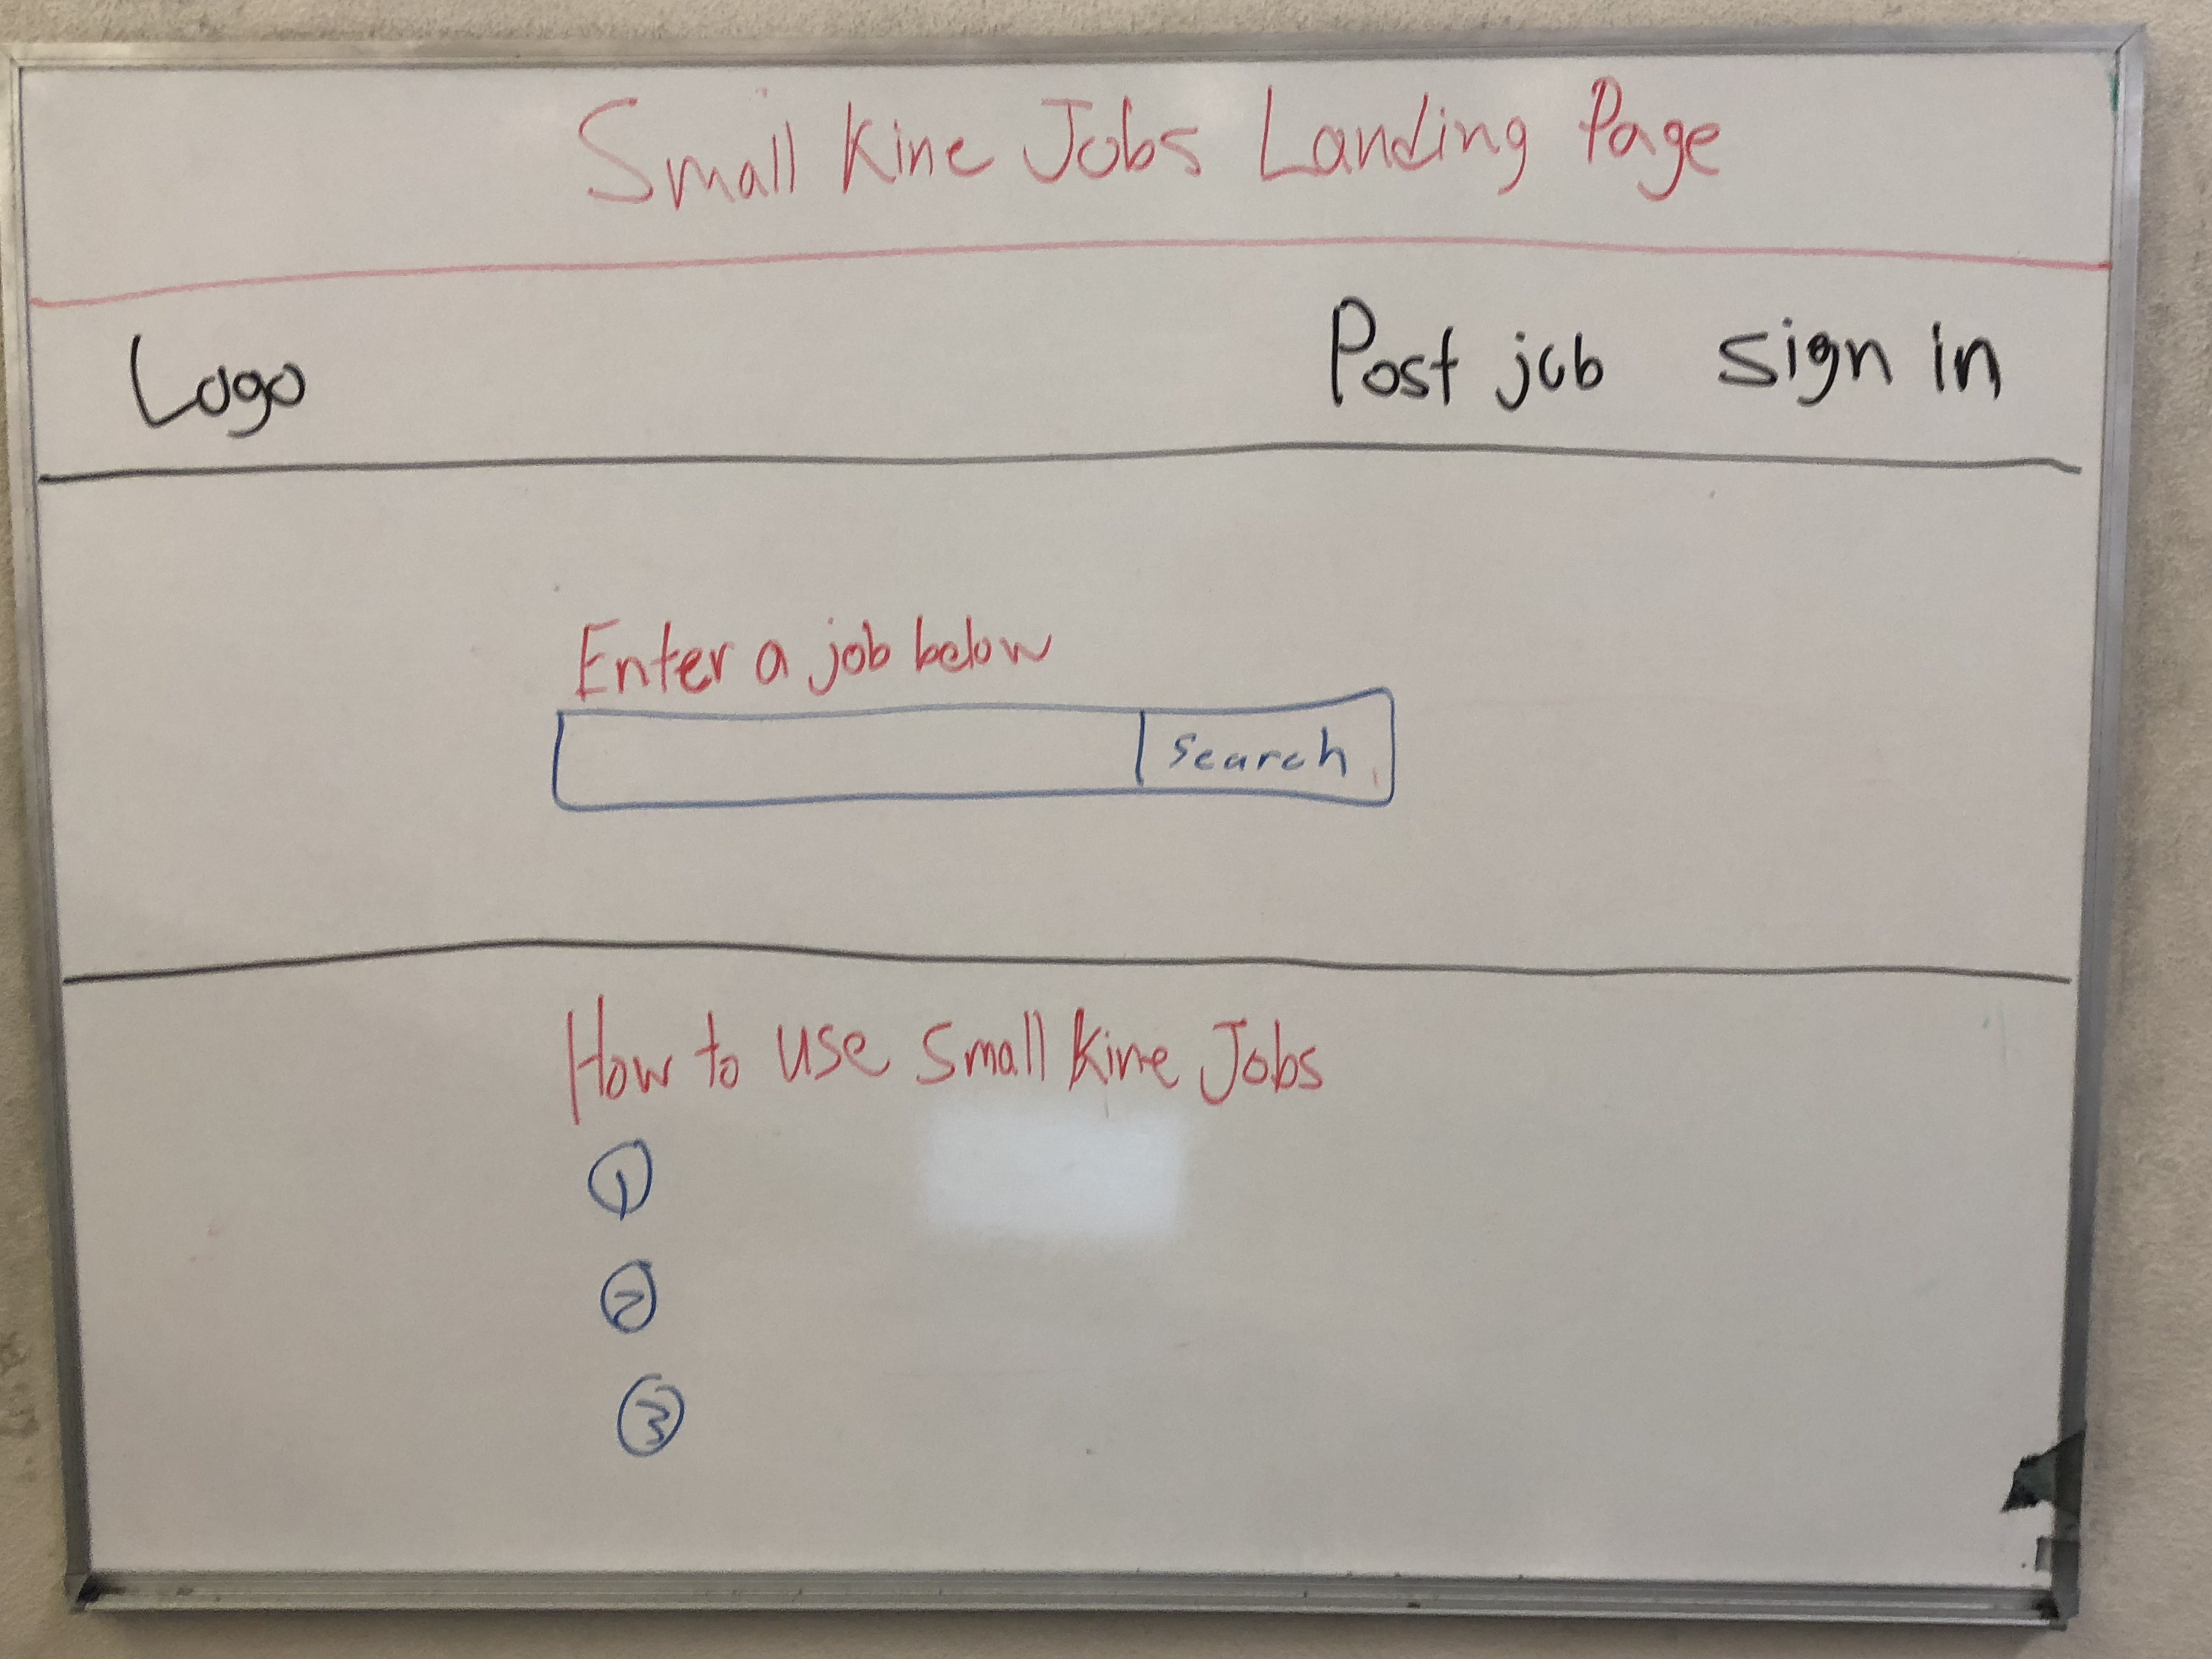 Small Kine Jobs Landing Page
Logo Post job sign in
Enter a job below
search
How to use Small Kine Jobs
1
2
3